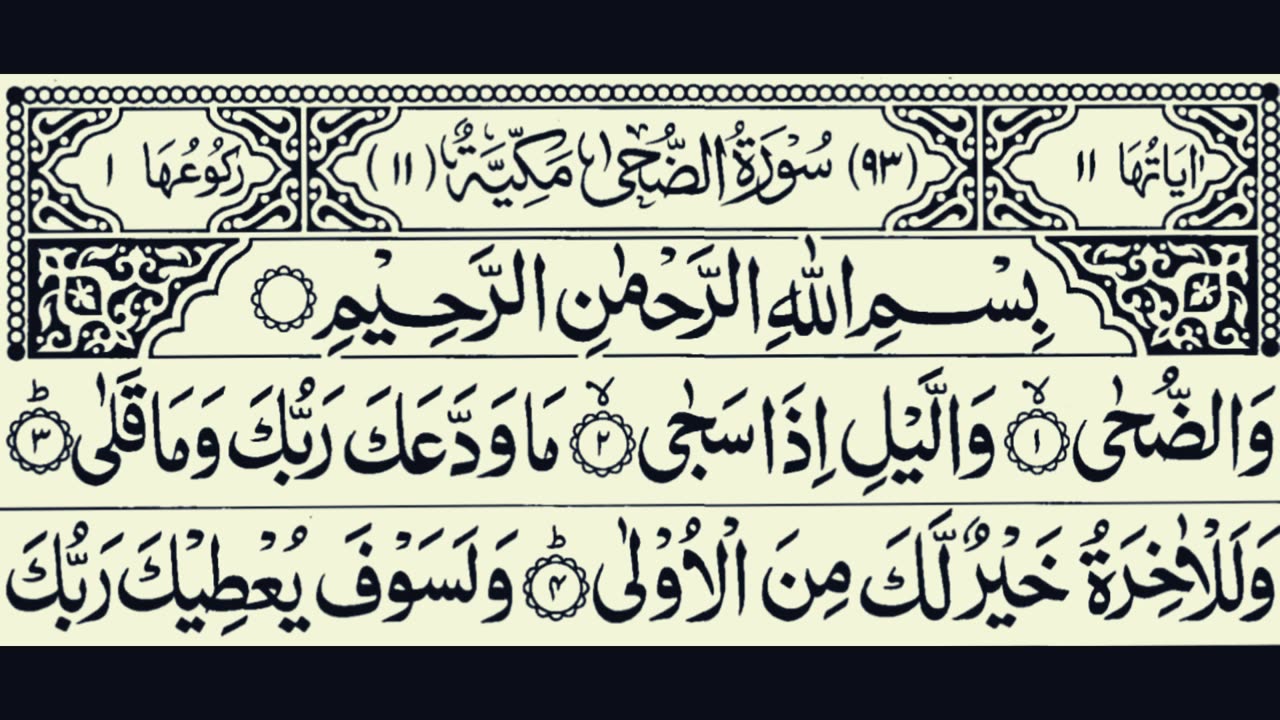 اٰيَاتُهَا ١١ (٩٣) سُوْرَةُ الضُّحٰى مَكِّيَّةٌ (١١) رُكُوْعُهَا ١
بِسْمِ اللّٰهِ الرَّحْمٰنِ الرَّحِيْمِ
وَالضُّحٰى ۙ‏﴿١﴾ وَالَّيْلِ اِذَا سَجٰى ۙ‏﴿٢﴾ مَا وَدَّعَكَ رَبُّكَ وَمَا قَلٰى ؕ‏﴿٣﴾
وَلَلْاٰخِرَةُ خَيْرٌ لَّكَ مِنَ الْاُوْلٰى ؕ‏﴿۴﴾ وَلَسَوْفَ يُعْطِيْكَ رَبُّكَ